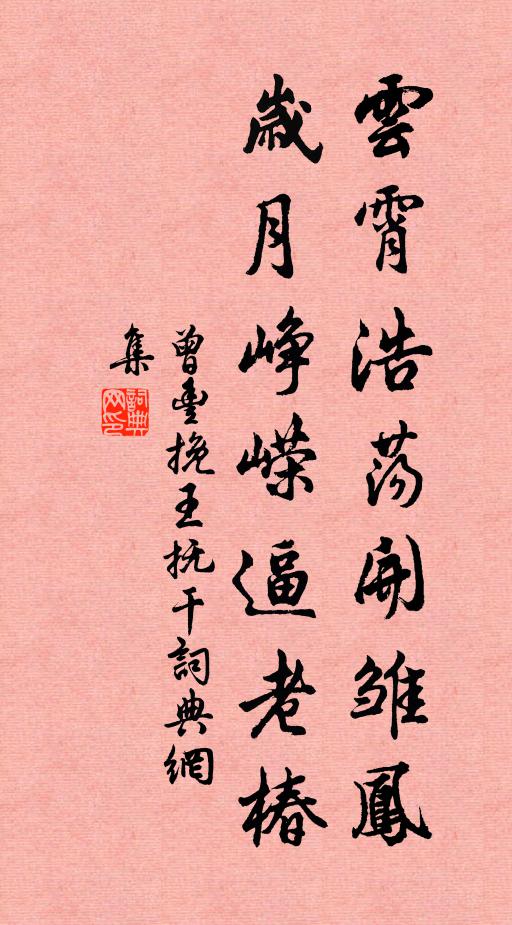 雲霄浩蕩開雛鳳
歲月崢嶸逼老椿
曾豐挽王抚干詞典網
集
詞典
网印